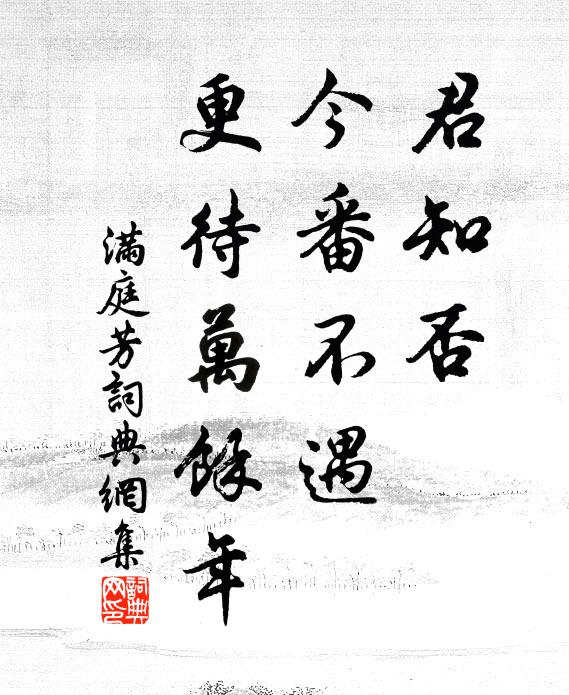 君知否
今番不遇
更待萬餘年
滿庭芳詞典網集
詞典
网印